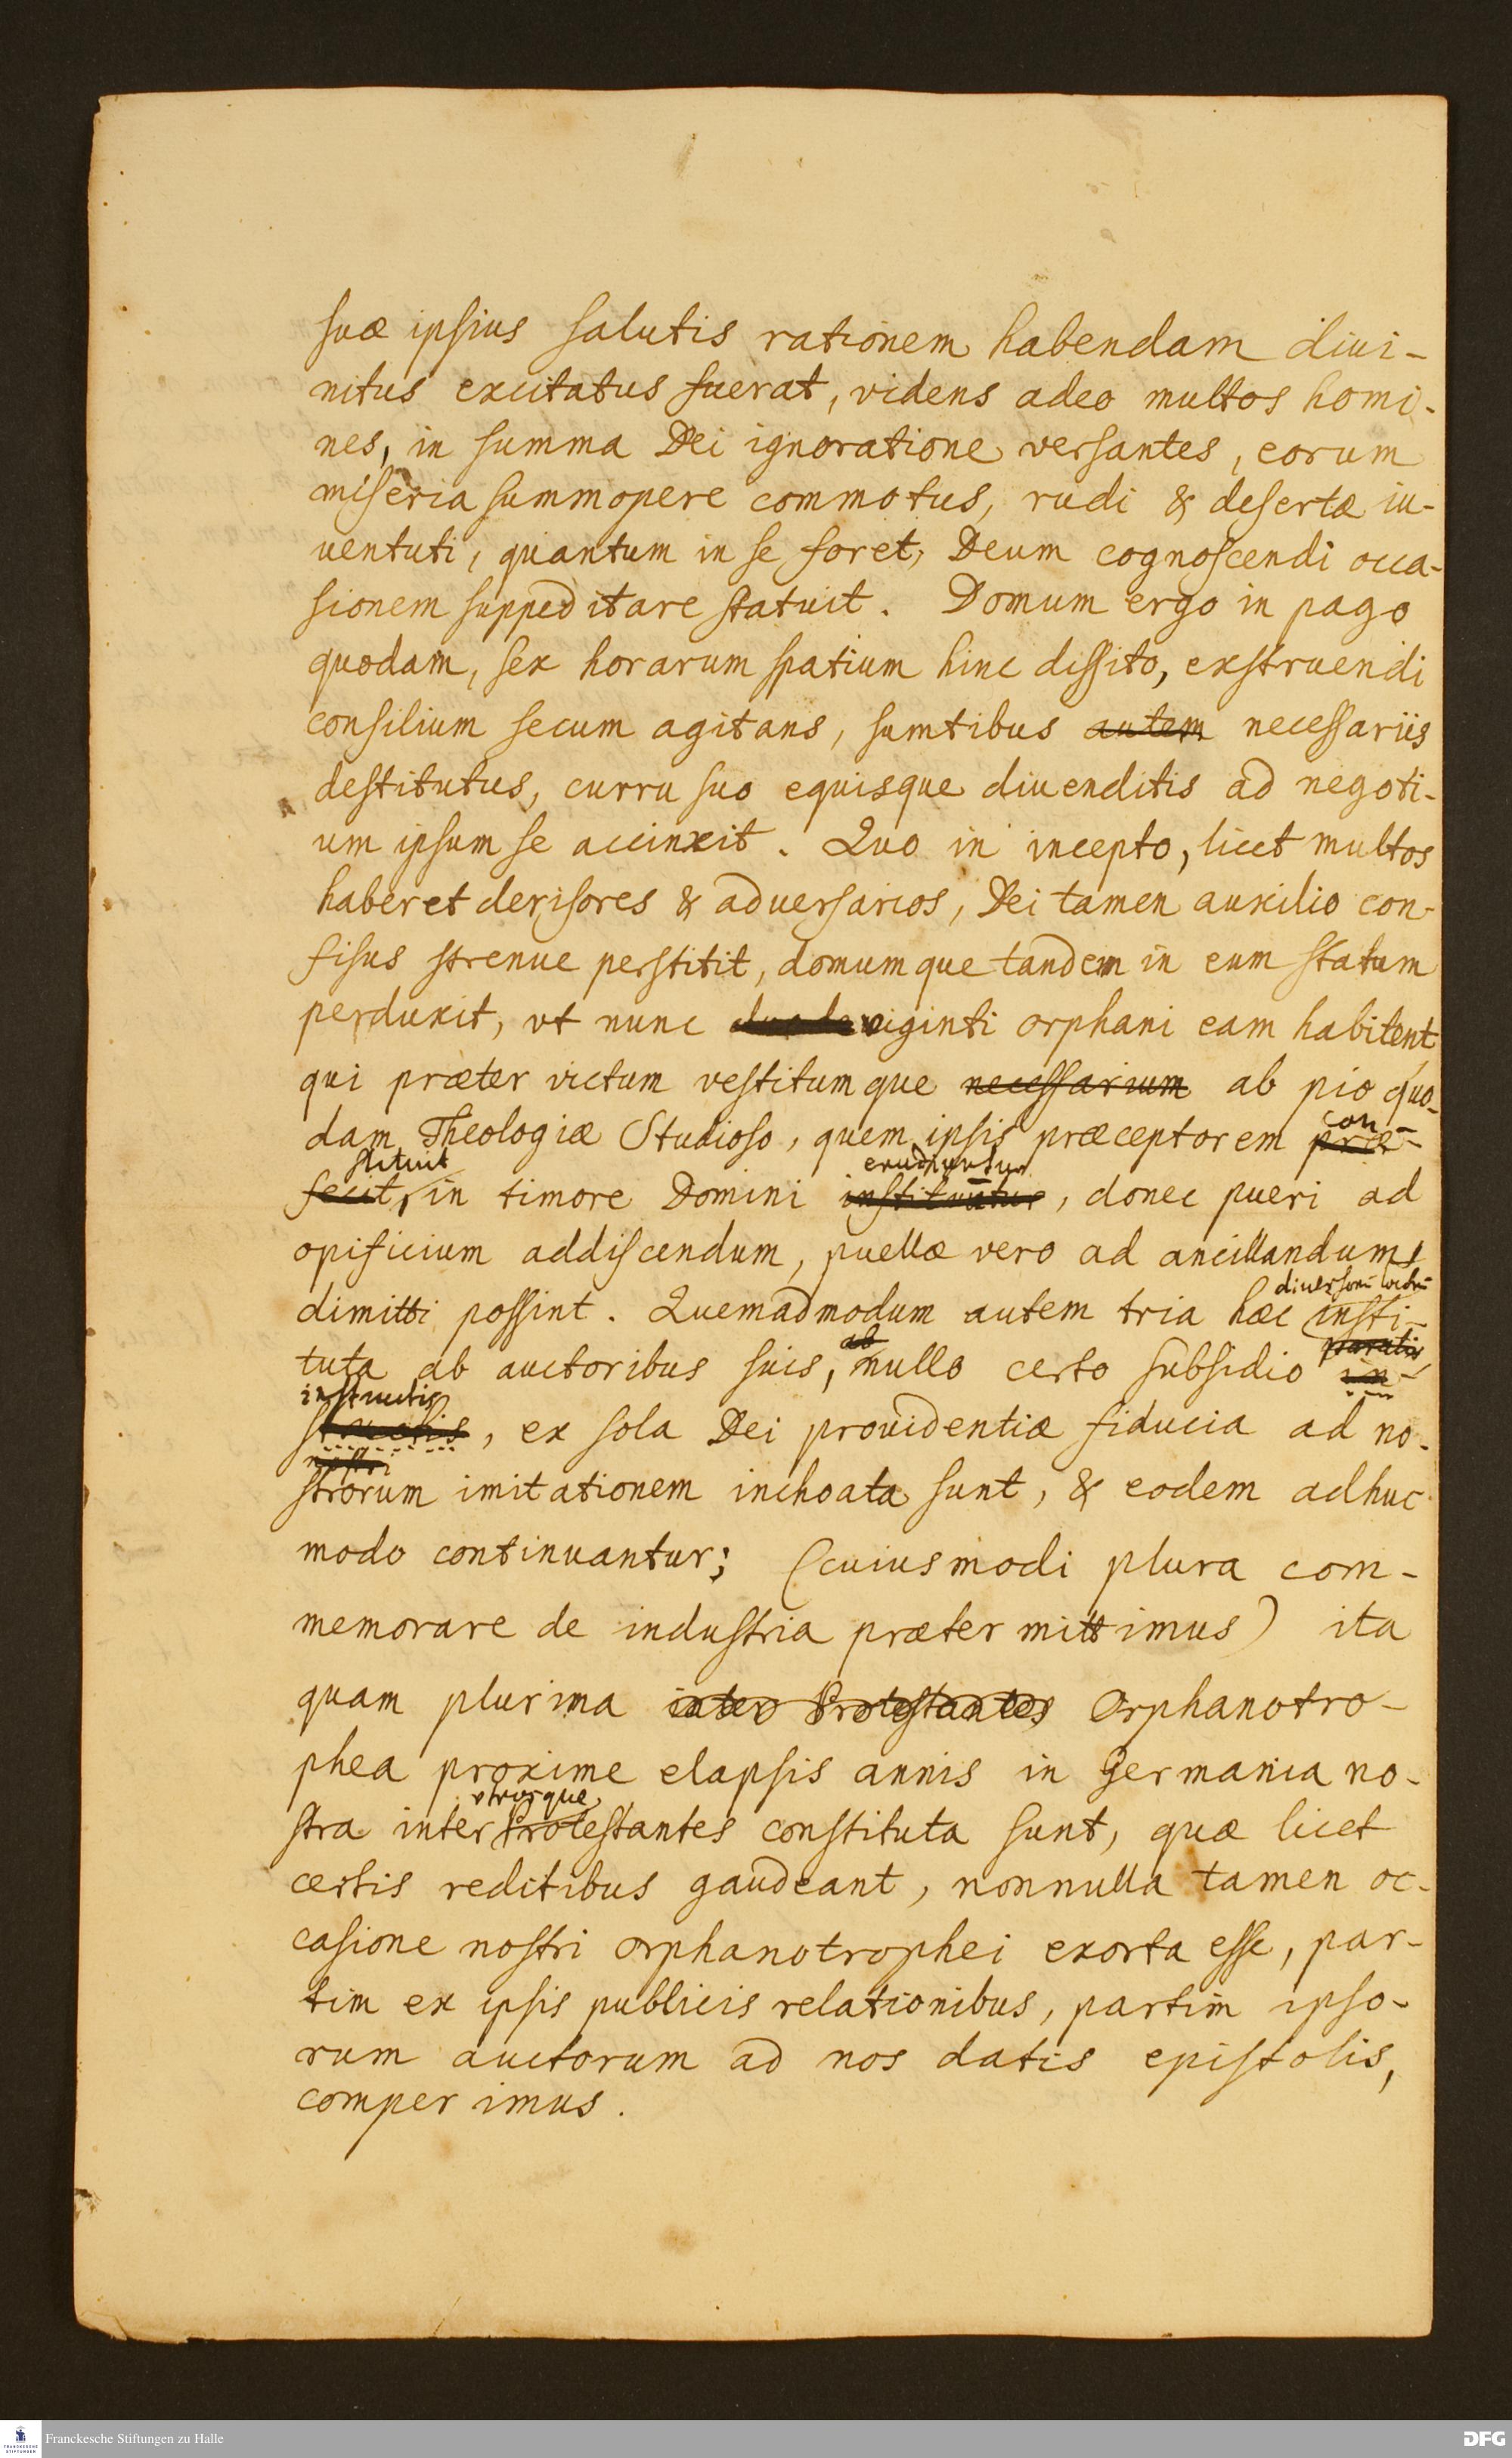 suæ ipsius salutis rationem habendam diui-
nitus excitatus fuerat, videns adeo multos homi-
nes, in summa Dei ignoratione versantes, eorum
miseria summopere commotus, rudi & desertæ iu-
uentuti, quantum in se foret, Deum cognoscendi occa-
sionem suppeditare statuit. Domum ergo in pago
quodam, sex horarum spatium hinc dissito, exstruendi
consilium secum agitans, sumtibus autem necessariis
destitutus, curru suo equisque diuenditis ad negoti-
um ipsum se accinxit. Quo in incepto, licet multos
haberet derisores & aduersarios, Dei tamen auxilio con-
fisus strenue perstitit, domumque tandem in eum statum
perduxit, vt nunc viginti orphani eam habitent
qui præter victum vestitumque necessarium ab pio quo-
dam Theologiæ Studioso, quem ipsis præceptorem præ-
con-
stituit
erudiuntur
fecit, in timore Domini instituuntur, donec pueri ad
opificium addiscendum, puellæ vero ad ancillandum
dimitti possint. Quemadmodum autem tria hæc insti-
ab
paratis
tuta ab auctoribus suis, nullo certo subsidio in-
instructis
structis, ex sola Dei prouidentiæ fiducia ad no-
nostri
strorum imitationem inchoata sunt, & eodem adhuc
modo continuantur; (cuiusmodi plura com-
memorare de industria prætermittimus) ita
quam plurima inter Protestantes Orphanotro-
phea proxime elapsis annis in Germania no-
vtrosque
stra inter Protestantes constituta sunt, quæ licet
certis reditibus gaudeant, nonnulla tamen oc-
casione nostri orphanotrophei exorta esse, par-
tim ex ipsis publicis relationibus, partim ipso-
rum auctorum ad nos datis epistolis,
comperimus.
Franckesche Stiftungen zu Halle
FRANCKESCHE STIFTUNGEN
DFG